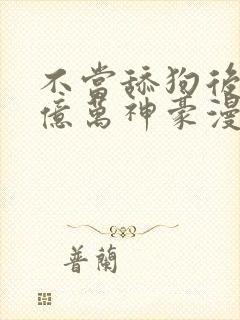 不當舔狗後
億萬神豪漫
普蘭